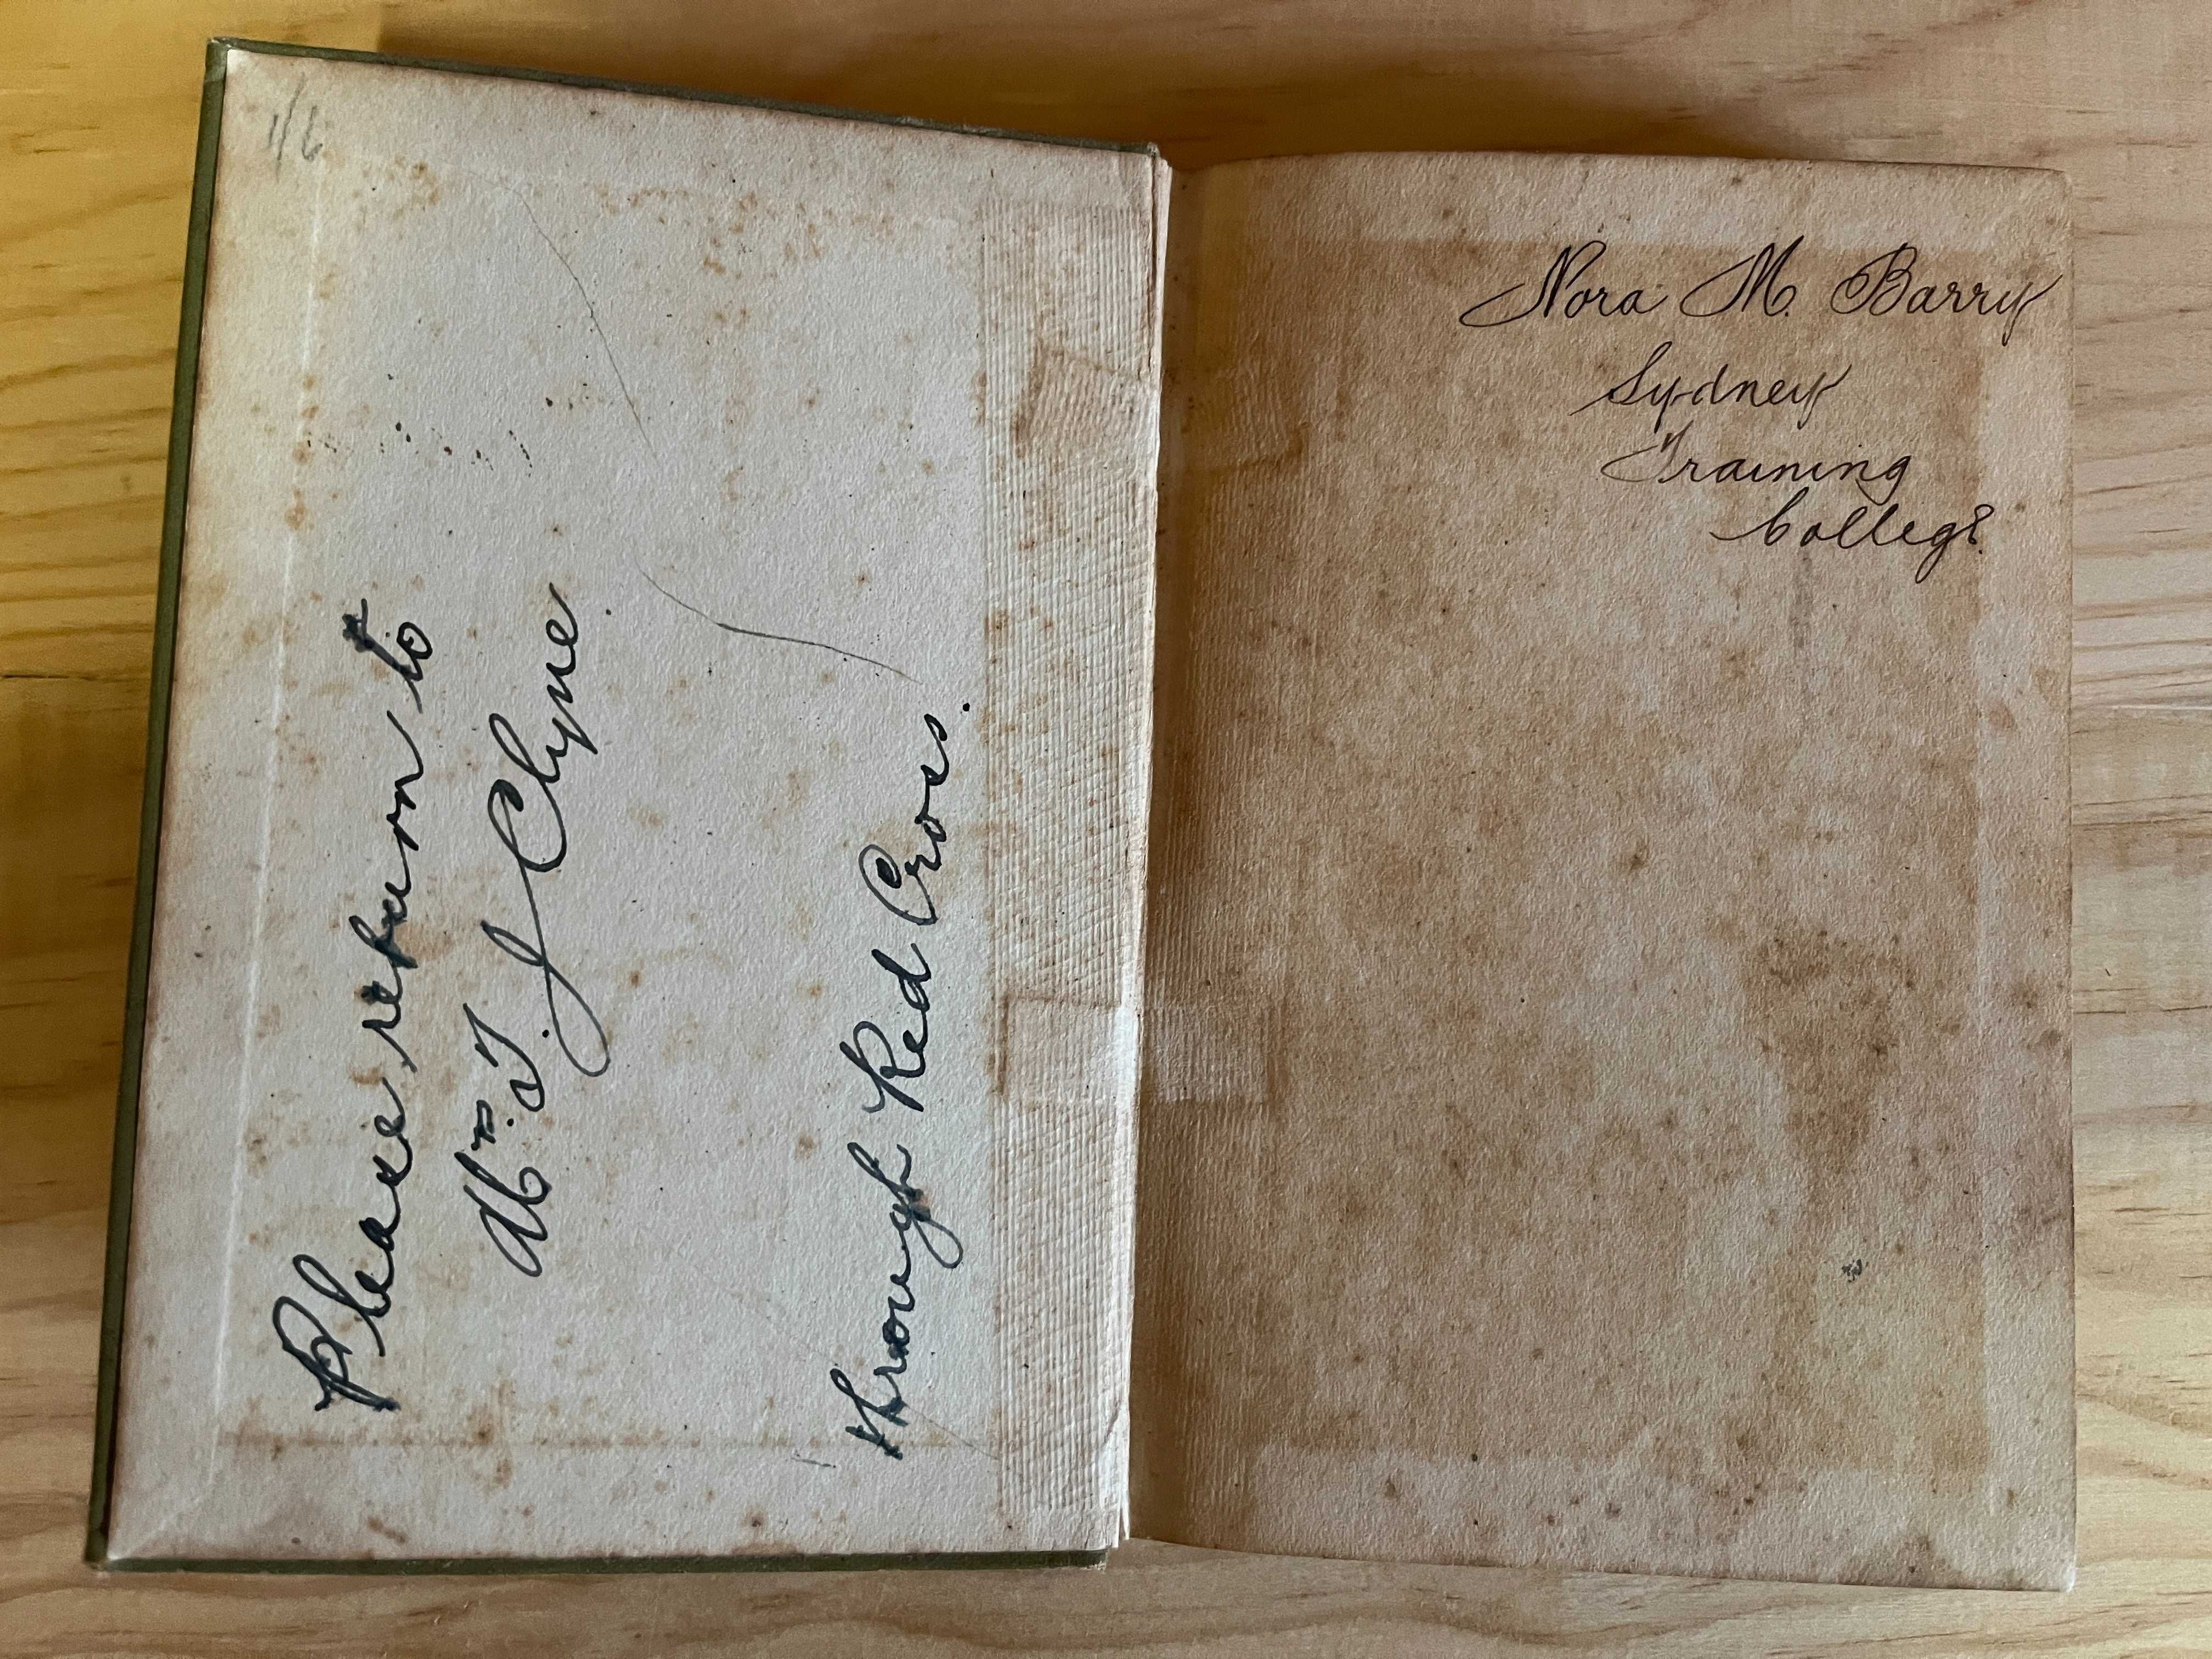 1/6
Please return to
Mrs. T. J Clyne.
through Red Cross.
Nora M. Barry
Sydney
Training
College.